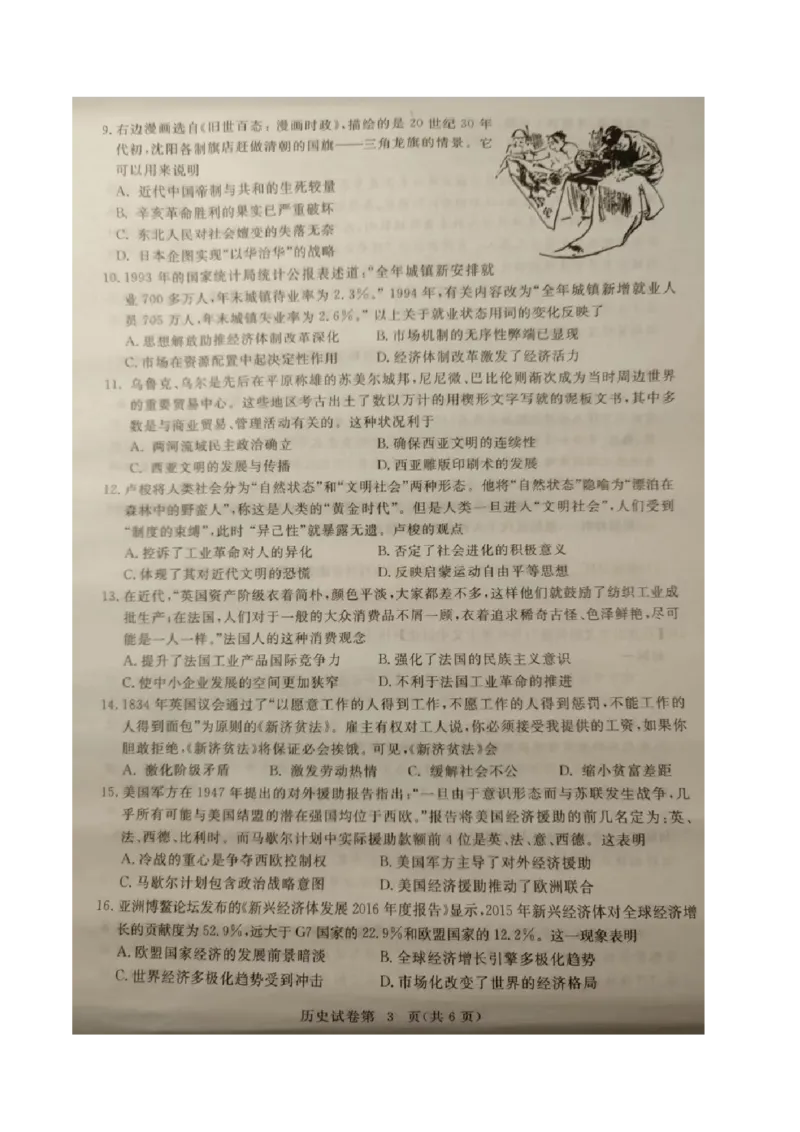 9. 右边漫画选自《旧世百态：漫画时政》，描绘的是 20 世纪 30 年
代初，沈阳各制旗店赶做清朝的国旗——三角龙旗的情景。它
可以用来说明
A. 近代中国帝制与共和的生死较量
B. 辛亥革命胜利的果实已严重破坏
C. 东北人民对社会嬗变的失落无奈
D. 日本企图实现“以华治华”的战略
10. 1993 年的国家统计局统计公报表述道：“全年城镇新安排就
业 700 多万人，年末城镇待业率为 2.3%。”1994 年，有关内容改为“全年城镇新增就业人
员 705 万人，年末城镇失业率为 2.6%。”以上关于就业状态用词的变化反映了
A. 思想解放助推经济体制改革深化 B. 市场机制的无序性弊端已显现
C. 市场在资源配置中起决定性作用 D. 经济体制改革激发了经济活力
11. 乌鲁克、乌尔是先后在平原称雄的苏美尔城邦，尼尼微、巴比伦则渐次成为当时周边世界
的重要贸易中心。这些地区考古出土了数以万计的用楔形文字写就的泥板文书，其中多
数是与商业贸易、管理活动有关的。这种状况利于
A. 两河流域民主政治确立 B. 确保西亚文明的连续性
C. 西亚文明的发展与传播 D. 西亚雕版印刷术的发展
12. 卢梭将人类社会分为“自然状态”和“文明社会”两种形态。他将“自然状态”隐喻为“漂泊在
森林中的野蛮人”，称这是人类的“黄金时代”。但是人类一旦进入“文明社会”，人们受到
“制度的束缚”，此时“异己性”就暴露无遗。卢梭的观点
A. 控诉了工业革命对人的异化 B. 否定了社会进化的积极意义
C. 体现了其对近代文明的恐慌 D. 反映启蒙运动自由平等思想
13. 在近代，“英国资产阶级衣着简朴，颜色平淡，大家都差不多，这样他们就鼓励了纺织工业成
批生产；在法国，人们对于一般的大众消费品不屑一顾，衣着追求稀奇古怪、色泽鲜艳，尽可
能是一人一样。”法国人的这种消费观念
A. 提升了法国工业产品国际竞争力 B. 强化了法国的民族主义意识
C. 使中小企业发展的空间更加狭窄 D. 不利于法国工业革命的推进
14. 1834 年英国议会通过了“以愿意工作的人得到工作，不愿工作的人得到惩罚，不能工作的
人得到面包”为原则的《新济贫法》。雇主有权对工人说，你必须接受我提供的工资，如果你
胆敢拒绝，《新济贫法》将保证必会挨饿。可见，《新济贫法》会
A. 激化阶级矛盾 B. 激发劳动热情 C. 缓解社会不公 D. 缩小贫富差距
15. 美国军方在 1947 年提出的对外援助报告指出：“一旦由于意识形态而与苏联发生战争，几
乎所有可能与美国结盟的潜在强国均位于西欧。”报告将美国经济援助的前几名定为：英、
法、西德、比利时。而马歇尔计划中实际援助款额前 4 位是英、法、意、西德。这表明
A. 冷战的重心是争夺西欧控制权 B. 美国军方主导了对外经济援助
C. 马歇尔计划包含政治战略意图 D. 美国经济援助推动了欧洲联合
16. 亚洲博鳌论坛发布的《新兴经济体发展 2016 年度报告》显示，2015 年新兴经济体对全球经济增
长的贡献度为 52.9%，远大于 G7 国家的 22.9%和欧盟国家的 12.2%。这一现象表明
A. 欧盟国家经济的发展前景暗淡 B. 全球经济增长引擎多极化趋势
C. 世界经济多极化趋势受到冲击 D. 市场化改变了世界的经济格局
历史试卷第 3 页（共 6 页）